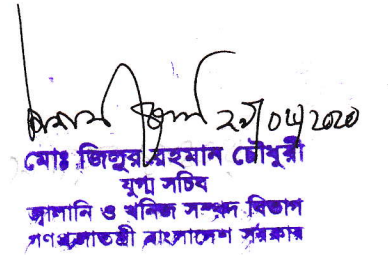 ২৯/০৬/২০২০
মোঃ জিল্লুর রহমান চৌধুরী
যুগ্ম সচিব
জ্বালানি ও খনিজ সম্পদ বিভাগ
গণপ্রজাতন্ত্রী বাংলাদেশ সরকার